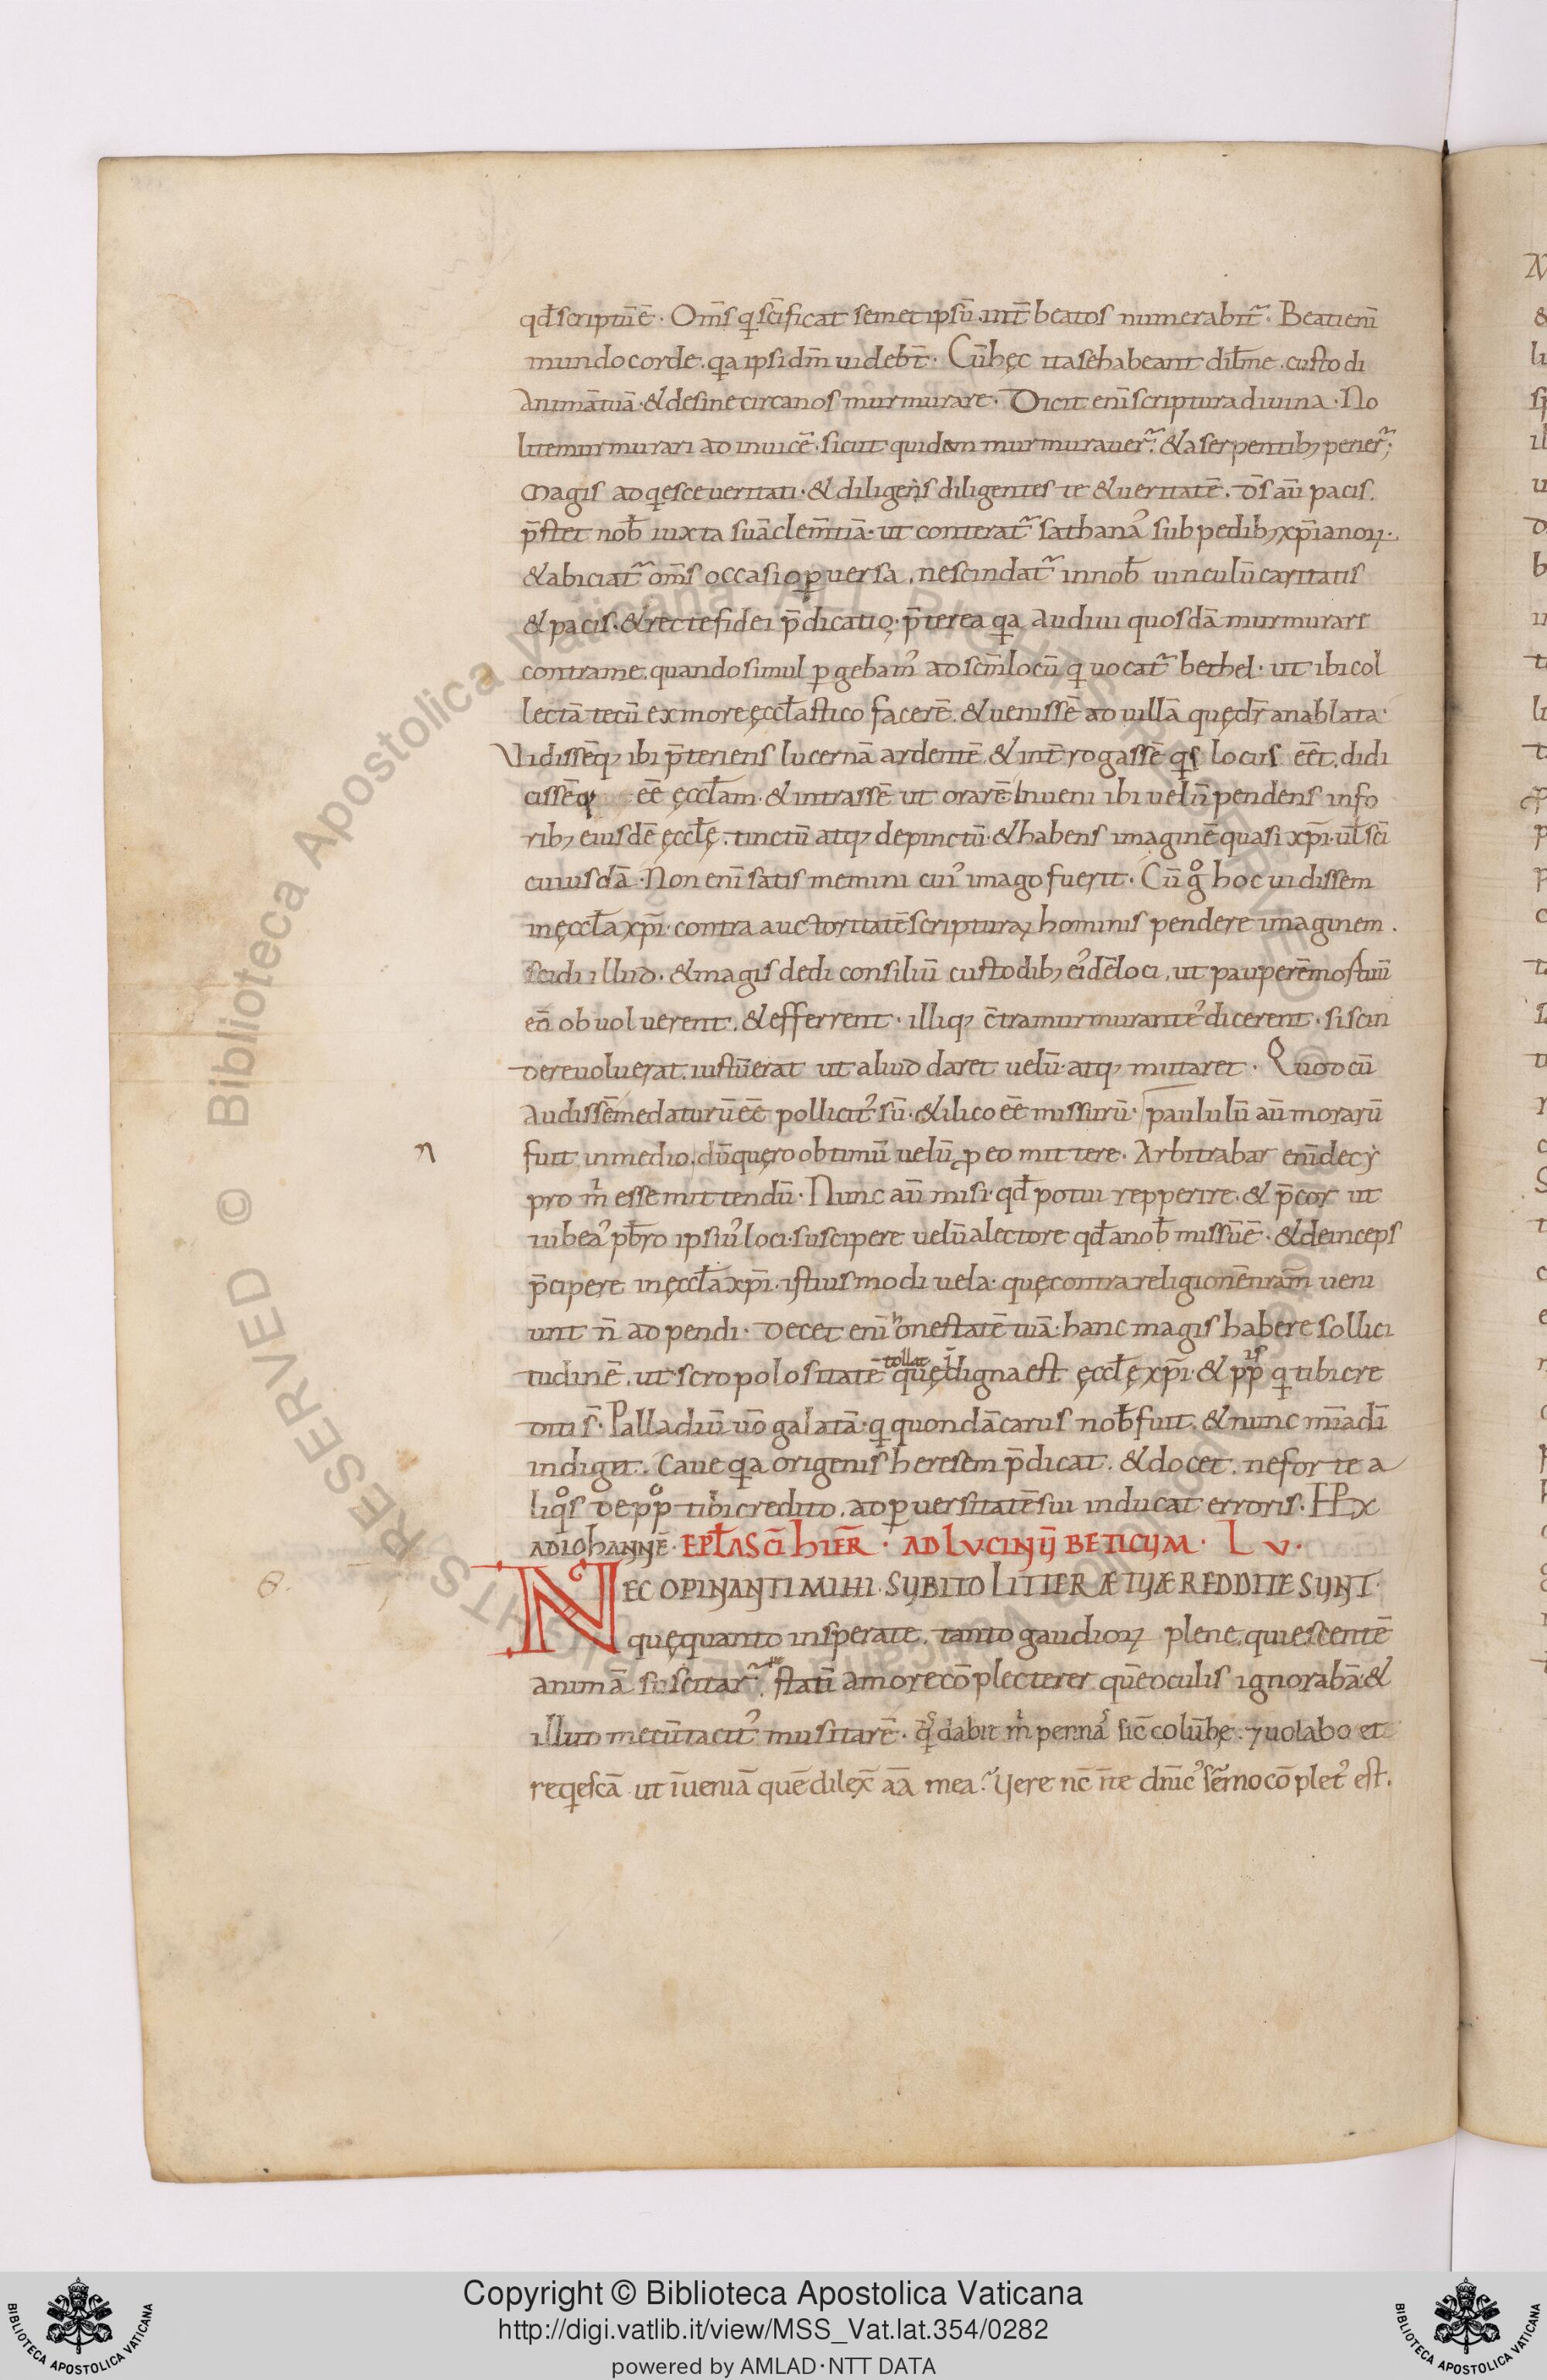 qđ scriptū ē. Om̄s q sc̄ificat semet ipsū. int̄ beatos numerabit̃. Beati eni
mundo corde. qa ipsi dm̄ uidebt̄. Cū hęc ita se habeant dił̄me. custodi
animā tuā. & desine circa nos murmurare. Dicit enī scriptura diuina. No
lite murmurari ad inuicē. sicut quidam murmurauer̃. & a serpentib; perier̃;
Magis adqesce ueritati. & diligens diligentes te & ueritatē. Ds̄ aū pacis.
p̄stet nob̄ iuxta suā clem̄tiā. ut conterat̃ sathanaʼ sub pedib; xp̄ianoꝝ.
& abiciat̃ om̄s occasio puersa. ne scindat̃ in nob̄ uinculū caritatis
& pacis. & recte fidei p̄dicatio. p̄terea qa audiui quosdā murmurare
contra me. quando simul pgebamʼ ad sc̄m locū q uocat̃ bethel. ut ibi col
lectā tecū ex more ęccl̄astico facerē. & uenissē ad uillā quę dr̄ anablata.
Vidissēq; ibi p̄teriens lucernā ardentē. & int̄rogassē qs locus eēt. didi
cissēq; eē ęccl̄am. & intrassē ut orarē. Inueni ibi uelū pendens in fo
rib; eiusdē ęccl̄ę. tinctū atq; depinctū. & habens imaginē quasi xp̄i. ul̄ sc̄i
cuiusdā. Non enī satis memini cuiʼ imago fuerit. Cū g̊ hoc uidissem
in ęccl̄a xp̄i. contra auctoritatē scripturaꝝ hominis pendere imaginem.
scidi illud. & magis dedi consiliū custodib; eiʼdē loci. ut pauperē mortuū
eo obuoluerent. & efferrent. illiq; c̄tra murmuranteʼ dicerent. si scin
dere uoluerat. iustū erat ut aliud daret uelū. atq; mutaret. Quod cū
audissē me daturū eē pollicitʼ sū. & ilico eē missurū. paululū aū morarū
fuit in medio. dū quęro obtimū uelū p eo mittere. Arbitrabar enī de cy
pro m̍ esse mittendū. Nunc aū misi. qđ potui repperire. & p̄cor ut
iubeaʼ pb̄ro ipsiuʼ loci. suscipere uelū a lectore qđ a nob̄ missū ē. & deinceps
p̄cipere in ęccl̄a xp̄i. istiusmodi uela. quę contra religionē nram̄ ueni
unt n̄ adpendi. Decet enī honestatē tuā. hanc magis habere sollici
tudinē. ut scropolositatē tollat quę īdigna est ęccl̄ę xp̄i. & ppis q tibi cre
diti s̄. Palladiū uō galatā. q quondā carus nob̄ fuit. & nunc mīa dī
indiget. Caue qa origenis heresem p̄dicat. & docet. ne forte a
liqos de pp̊ tibi credito. ad puersitatē sui inducat erroris. EPx
AD IOhANNĒ. EPL̄A SC̄I hIER̄. AD LVCINIJ BETICUM. Lv.
NEC OPINANTI MIHI. SUBITO LITTERÆ TUÆ REDDITE SUNT.
quę quanto insperate. tanto gaudioꝝ plene. quiescentē
animā suscitar̃. statī amore cōplecterer. quē oculis ignorabā. &
illud mecū tacitʼ musitarē. qs dabit m̍ pennaʼ sic̄ colūbę. 7 uolabo et
reqescā ut īueniā quē dilex̄ aā mea. Uere nc̄ n̄ te dnīcʼ sērmo cōpletʼ est.
Copyright © Biblioteca Apostolica Vaticana
http://digi.vatlib.it/view/MSS_Vat.lat.354/0282
powered by AMLAD·NTT DATA